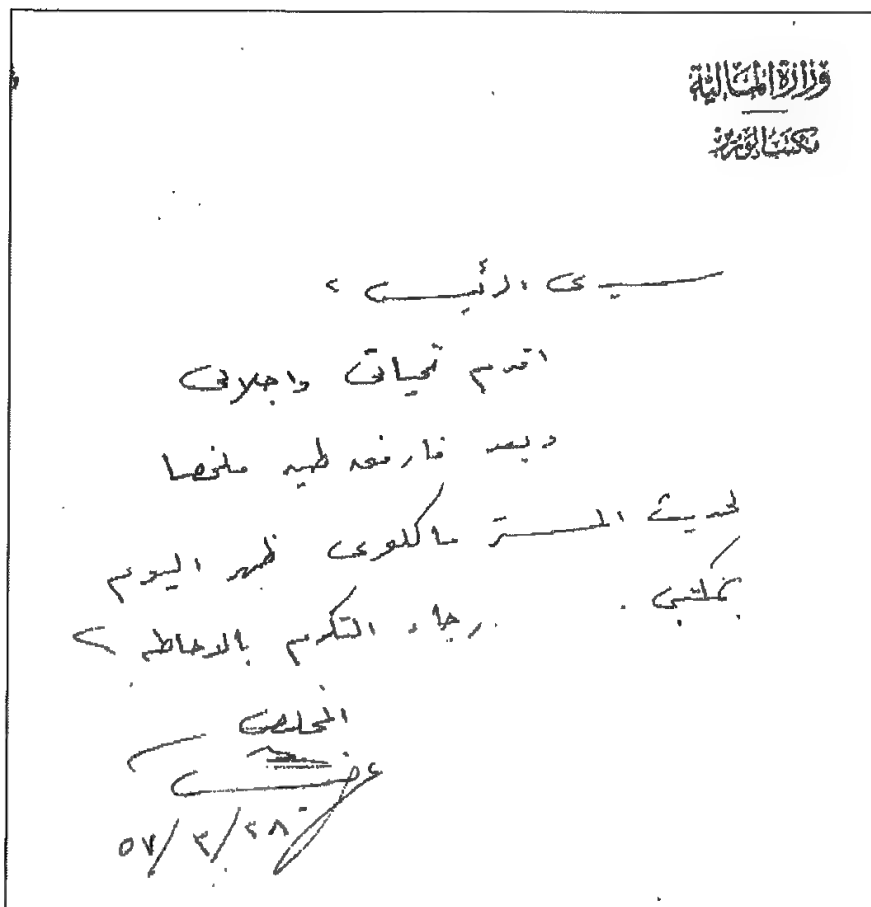 وزارة المالية
مكتب الوزير
سيدى الرئيس
اقدم تحياتى واجلالى
وبعد فارفع طيه ملخصا
لحديث المستر ماكلوى ظهر اليوم
بمكتبى . رجاء التكرم بالاحاطه
المخلص
٥٧/٣/٢٨